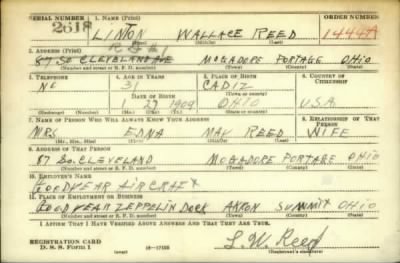 SERIAL NUMBER 1. NAME (Print) ORDER NUMBER
2618 LINTON WALLACE REED 14447A
(First) (Middle) (Last)
2. ADDRESS (Print)
87 SO CLEVELAND AVE MOGADORE PORTAGE OHIO
(Number and street or R. F. D. number) (Town) (County) (State)
3. TELEPHONE 4. AGE IN YEARS 5. PLACE OF BIRTH 6. COUNTRY OF CITIZENSHIP
NO 31 CADIZ
DATE OF BIRTH (Town or county)
1 27 1909 OHIO U.S.A.
(Exchange) (Number) (Mo.) (Day) (Yr.) (State or country)
7. NAME OF PERSON WHO WILL ALWAYS KNOW YOUR ADDRESS 8. RELATIONSHIP OF THAT PERSON
MRS EDNA MAY REED WIFE
(Mr., Mrs., Miss) (First) (Middle) (Last)
9. ADDRESS OF THAT PERSON
87 SO. CLEVELAND MOGADORE PORTAGE OHIO
(Number and street or R. F. D. number) (Town) (County) (State)
10. EMPLOYER'S NAME
GOODYEAR AIRCRAFT
11. PLACE OF EMPLOYMENT OR BUSINESS
GOODYEAR ZEPPELIN DOCK AKRON SUMMIT OHIO
(Number and street or R. F. D. number) (Town) (County) (State)
I AFFIRM THAT I HAVE VERIFIED ABOVE ANSWERS AND THAT THEY ARE TRUE.
REGISTRATION CARD
D. S. S. Form 1 16—17105 L. W. Reed
(Registrant's signature)